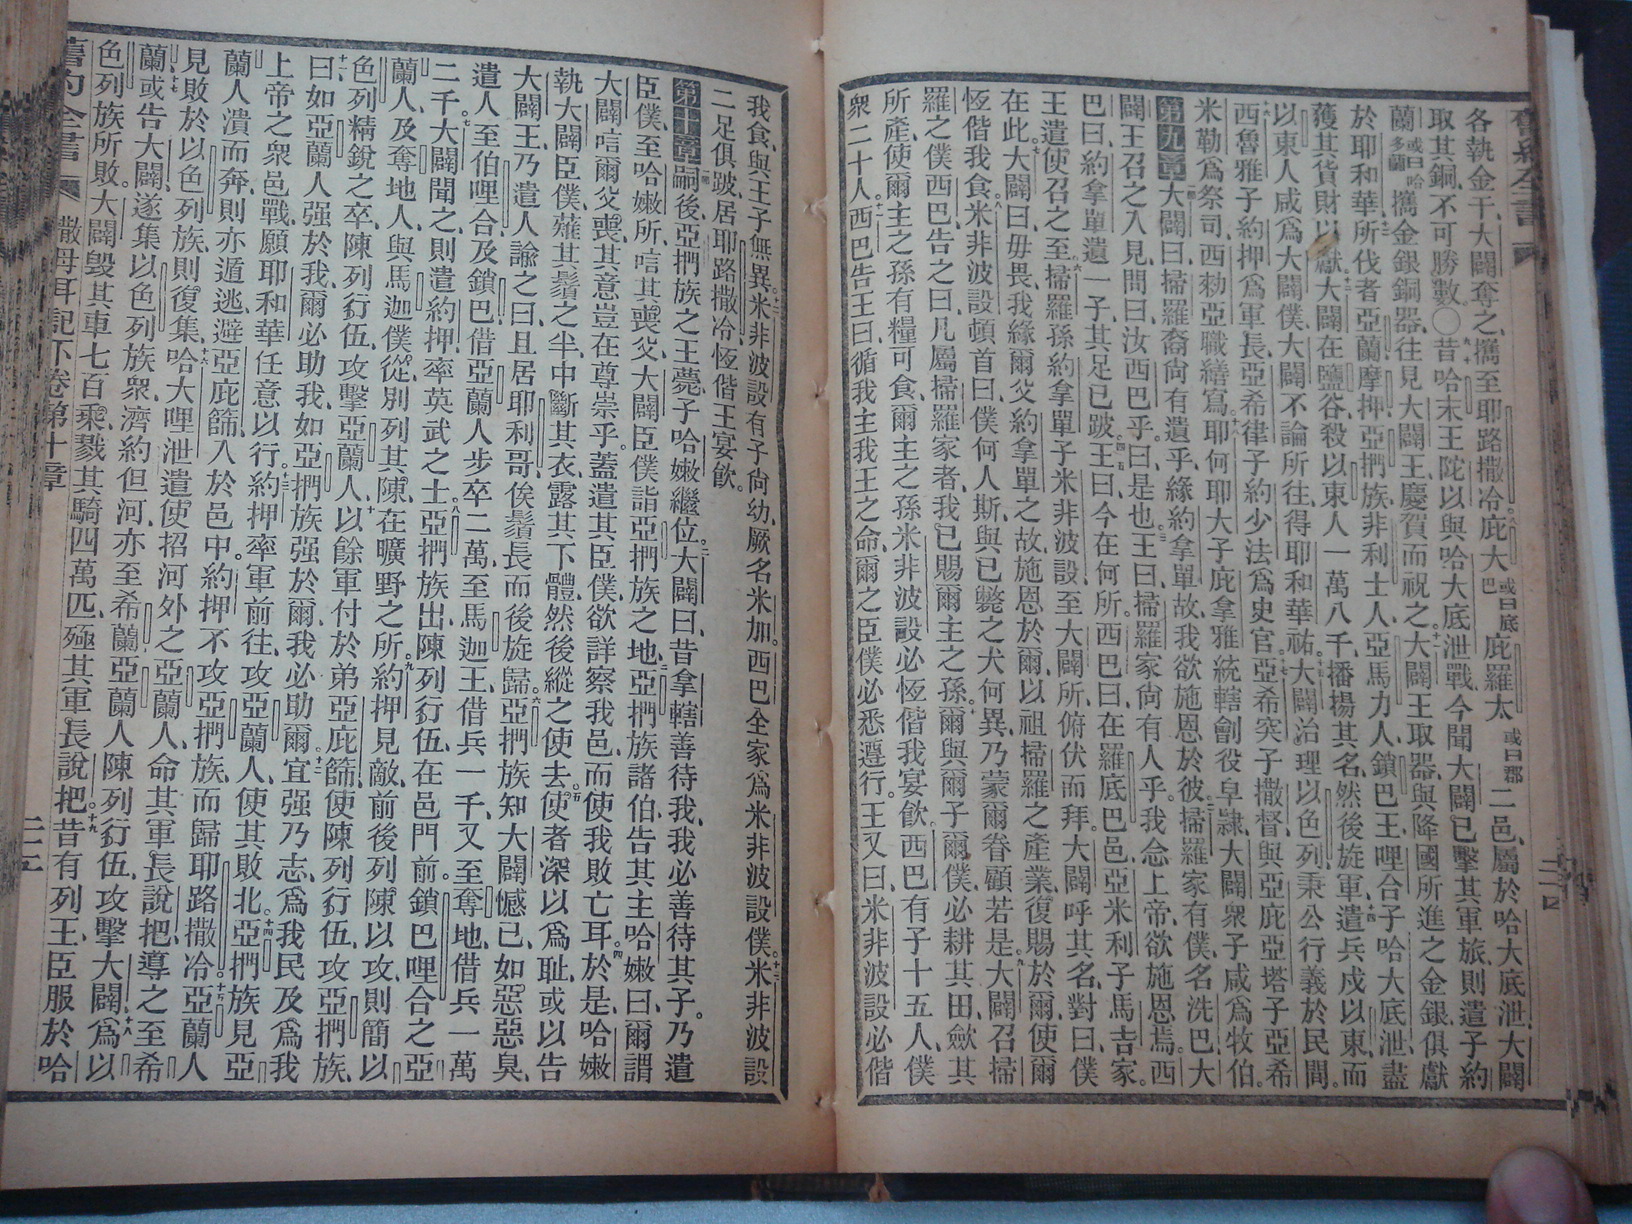 舊約全書
各執金干、大闢奪之、攜至耶路撒冷、庇大或曰底巴庇羅太、或曰郡二邑、屬於哈大底泄、大闢
取其銅、不可勝數。○昔哈末王陀以、與哈大底泄戰、今聞大闢已擊其軍旅、則遣子約
蘭或曰哈多蘭攜金銀銅器、往見大闢王、慶賀而祝之、大闢王取器、與降國所進之金銀、俱獻
於耶和華、所伐者亞蘭、摩押、亞捫族、非利士人、亞馬力人、鎖巴王、哩合子哈大底泄、盡
獲其貨財、以獻、大闢在鹽谷、殺以東人一萬八千、播揚其名、然後旋軍、遣兵戍以東、而
以東人咸爲大闢僕、大闢不論所往、得耶和華祐、大闢治理以色列、秉公行義於民間。
西魯雅子約押、爲軍長、亞希律子約少法、爲史官、亞希突子撒督、與亞庇亞塔子亞希
米勒、爲祭司、西勑亞職繕寫、耶何耶大子庇拿雅、統轄劊役皁隸、大闢衆子、咸爲牧伯。
第九章 大闢曰、掃羅裔尙有遺乎、緣約拿單故、我欲施恩於彼、掃羅家有僕、名洗巴、大
闢王召之入見、問曰、汝西巴乎。曰、是也。王曰、掃羅家尙有人乎。我念上帝、欲施恩焉。西
巴曰、約拿單遺一子、其足已跛、王曰、今在何所。西巴曰、在羅底巴邑、亞米利子馬吉家。
王遣使召之至、掃羅孫約拿單子米非波設、至大闢所、俯伏而拜。大闢呼其名、對曰、僕
在此、大闢曰、毋畏、我緣爾父約拿單之故、施恩於爾、以祖掃羅之產業、復賜於爾、使爾
恆偕我食、米非波設頓首曰、僕何人斯、與已斃之犬何異、乃蒙爾眷顧若是。大闢召掃
羅之僕西巴、告之曰、凡屬掃羅家者、我已賜爾主之孫、爾與爾子爾僕、必耕其田、斂其
所產、使爾主之孫、有糧可食、爾主之孫、米非波設、必恆偕我宴飲。西巴有子十五人、僕
衆二十人、西巴告王曰、循我主我王之命、爾之臣僕、必悉遵行。王又曰、米非波設必偕
我食、與王子無異、米非波設有子尙幼、厥名米加。西巴全家、爲米非波設僕。米非波設
二足俱跛、居耶路撒冷、恆偕王宴飲。
第十章 嗣後亞捫族之王薨、子哈嫩繼位。大闢曰、昔拿轄善待我、我必善待其子。乃遣
臣僕、至哈嫩所、唁其喪父、大闢臣僕詣亞捫族之地、亞捫族諸伯告其主哈嫩曰、爾謂
大闢唁爾父喪、其意豈在尊崇乎。蓋遣其臣僕、欲詳察我邑、而使我敗亡耳。於是哈嫩
執大闢臣僕、薙其鬚之半、中斷其衣、露其下體、然後縱之使去。使者深以爲耻、或以告
大闢王、乃遣人諭之曰、且居耶利哥、俟鬚長而後旋歸。亞捫族知大闢憾已、如惡惡臭、
遣人至伯哩合、及鎖巴、借亞蘭人步卒二萬、至馬迦王、借兵一千、又至奪地、借兵一萬
二千。大闢聞之、則遣約押、率英武之士、亞捫族出、陳列行伍、在邑門前。鎖巴哩合之亞
蘭人、及奪地人、與馬迦僕從、別列其陳、在曠野之所。約押見敵、前後列陳以攻、則簡以
色列精銳之卒、陳列行伍、攻擊亞蘭人、以餘軍付於弟亞庇篩、使陳列行伍、攻亞捫族、
曰、如亞蘭人强於我、爾必助我、如亞捫族强於爾、我必助爾、宜强乃志、爲我民及爲我
上帝之衆邑戰、願耶和華任意以行。約押率軍前往、攻亞蘭人、使其敗北。亞捫族見亞
蘭人潰而奔、則亦遁逃、避亞庇篩、入於邑中。約押不攻亞捫族、而歸耶路撒冷。亞蘭人
見敗於以色列族、則復集、哈大哩泄遣使、招河外之亞蘭人、命其軍長說把導之至希
蘭、或告大闢、遂集以色列族衆、濟約但河、亦至希蘭、亞蘭人陳列行伍、攻擊大闢、爲以
色列族所敗。大闢毀其車七百乘、戮其騎四萬匹、殛其軍長說把。昔有列王、臣服於哈
舊約全書 撒母耳記下卷第十章 二十五